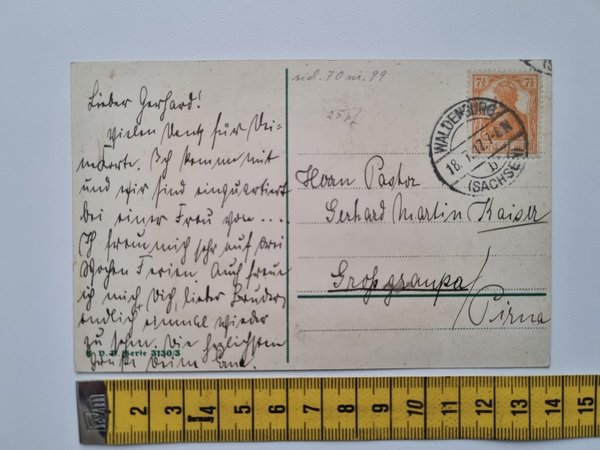 Lieber Gerhard!
Vielen Dank für Dei-
ne Karte. Ich komme mit
und wir sind einquartiert
bei einer Frau von ...
Ich freu mich sehr auf drei
Wochen Ferien. Auch freue
ich mich, Dich, lieber Bruder,
endlich einmal wieder
zu sehn. Die herzlichsten
Grüße Deine
V. B. Serie 3130/3
70 nr. 99
25 pf
7½ 7½
WALDENBURG
18. 7. 17. 1-
b
(SACHSEN)
Herrn Pastor
Gerhard Martin Kaiser
Großgraupa/
Pirna
1 2 3 4 5 6 7 8 9 10 11 12 13 14 15
Germany